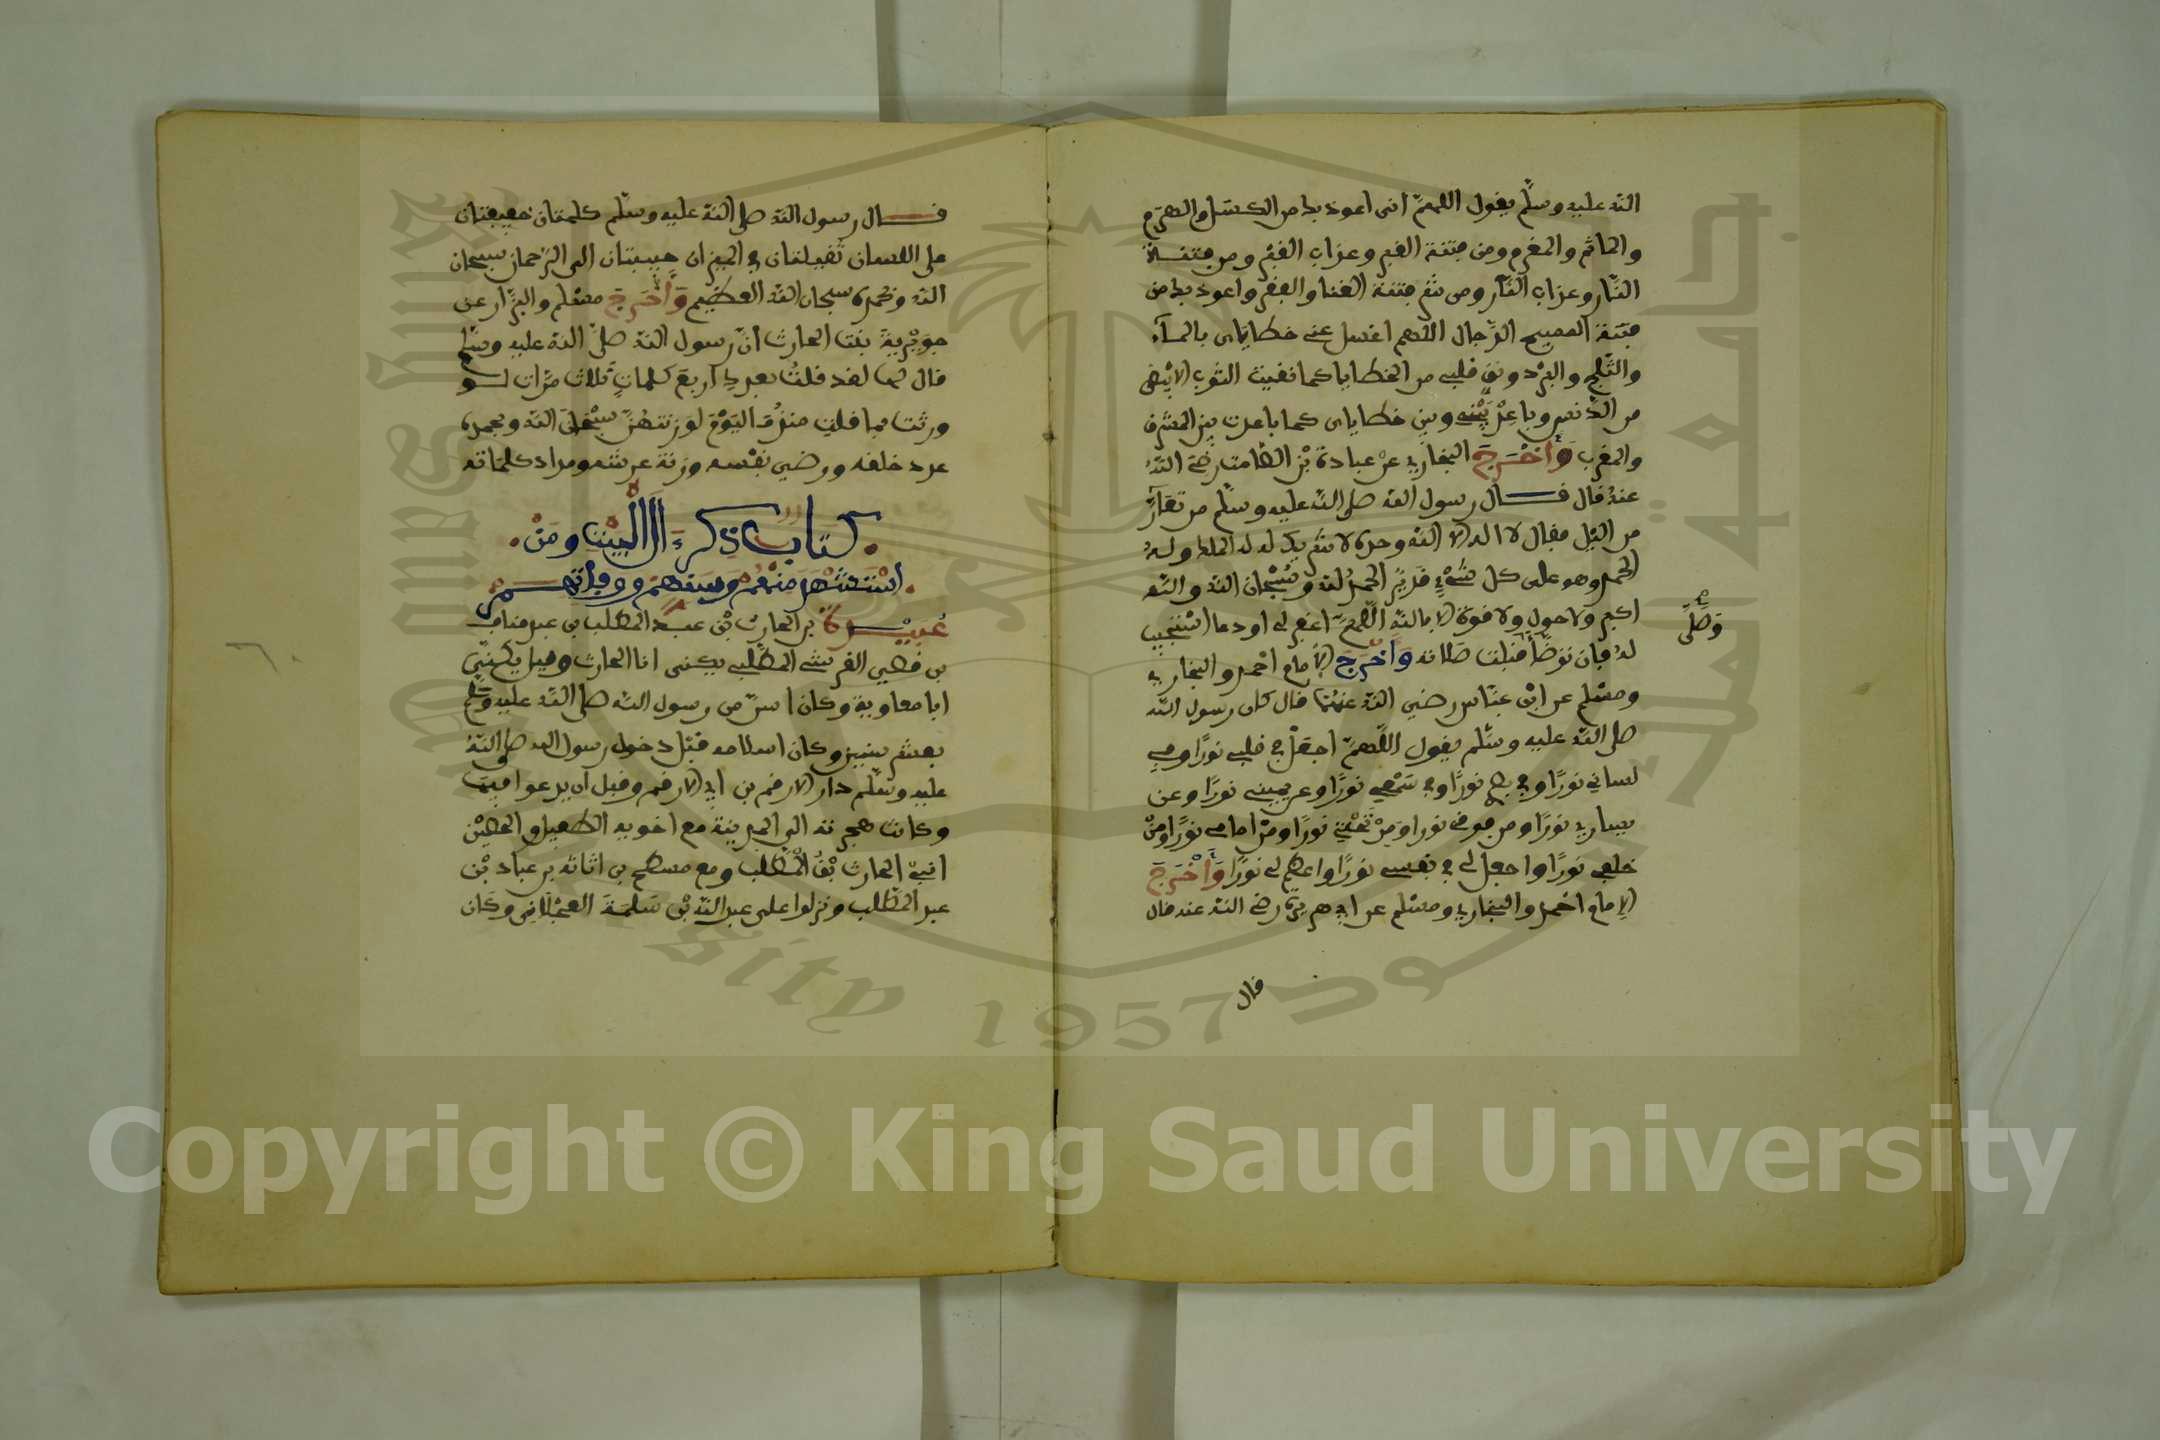 الله عليه وسلم يقول اللهم اني اعوذ بك من الكسل والهرم
والماثم والمغرم ومن فتنة القبر وعذاب القبر ومن فتنة
النار وعذاب النار ومن شر فتنة الغنا والفقر واعوذ بك من
فتنة المسيح الدجال اللهم اغسل عني خطاياي بالماء
والثلج والبرد ونق قلبي من الخطايا كما نقيت الثوب الابيض
من الدنس وباعد بيني وبين خطاياي كما باعدت بين المشرق
والمغرب وأخرج البخاري عن عبادة بن الصامت رضي الله
عنه قال قال رسول الله صلى الله عليه وسلم من تعار
من اليل فقال لا اله الا الله وحده لا شريك له له الملك وله
الحمد وهو على كل شيء قدير الحمد لله وسبحان الله والله
اكبر ولا حول ولا قوة الا بالله اللهم اغفر لي او دعا استجيب
له فان توضأ قبلت صلاته وأخرج الامام احمد والبخاري
وصلى
صح
ومسلم عن ابن عباس رضي الله عنهما قال كان رسول الله
صلى الله عليه وسلم يقول اللهم اجعل في قلبي نورا وفي
لساني نورا وفي بصري نورا وفي سمعي نورا وعن يميني نورا وعن
يساري نورا ومن فوقي نورا ومن تحتي نورا ومن امامي نورا ومن
خلفي نورا واجعل لي في نفسي نورا واعظم لي نورا وأخرج
الامام احمد والبخاري ومسلم عن ابي هريرة رضي الله عنه قال
قال
قال رسول الله صلى الله عليه وسلم كلمتان خفيفتان
على اللسان ثقيلتان في الميزان حبيبتان الى الرحمان سبحان
الله وبحمده سبحان الله العظيم وأخرج مسلم والبزار عن
جويرية بنت الحارث ان رسول الله صلى الله عليه وسلم
قال لها لقد قلت بعدك اربع كلمات ثلاث مرات لو
وزنت بما قلت منذ اليوم لوزنتهن سبحان الله وبحمده
عدد خلقه ورضي نفسه وزنة عرشه ومداد كلماته
كتاب ذكر ءال البيت ومن
استشهر منهم ووفاتهم
عبيدة بن الحارث بن عبد المطلب بن عبد مناف
بن قصي القرشي المطلبي يكنى ابا الحارث وقيل يكنى
ابا معاوية وكان اسن من رسول الله صلى الله عليه وسلم
بعشر سنين وكان اسلامه قبل دخول رسول الله صلى الله
عليه وسلم دار الارقم بن ابي الارقم وقبل ان يدعوا فيها
وكانت هجرته الى المدينة مع اخويه الطفيل والحصين
ابني الحارث بن المطلب ومع مسطح بن اثاثه بن عباد بن
عبد المطلب ونزلوا على عبد الله بن سلمة العجلاني وكان
Copyright © King Saud University
1957